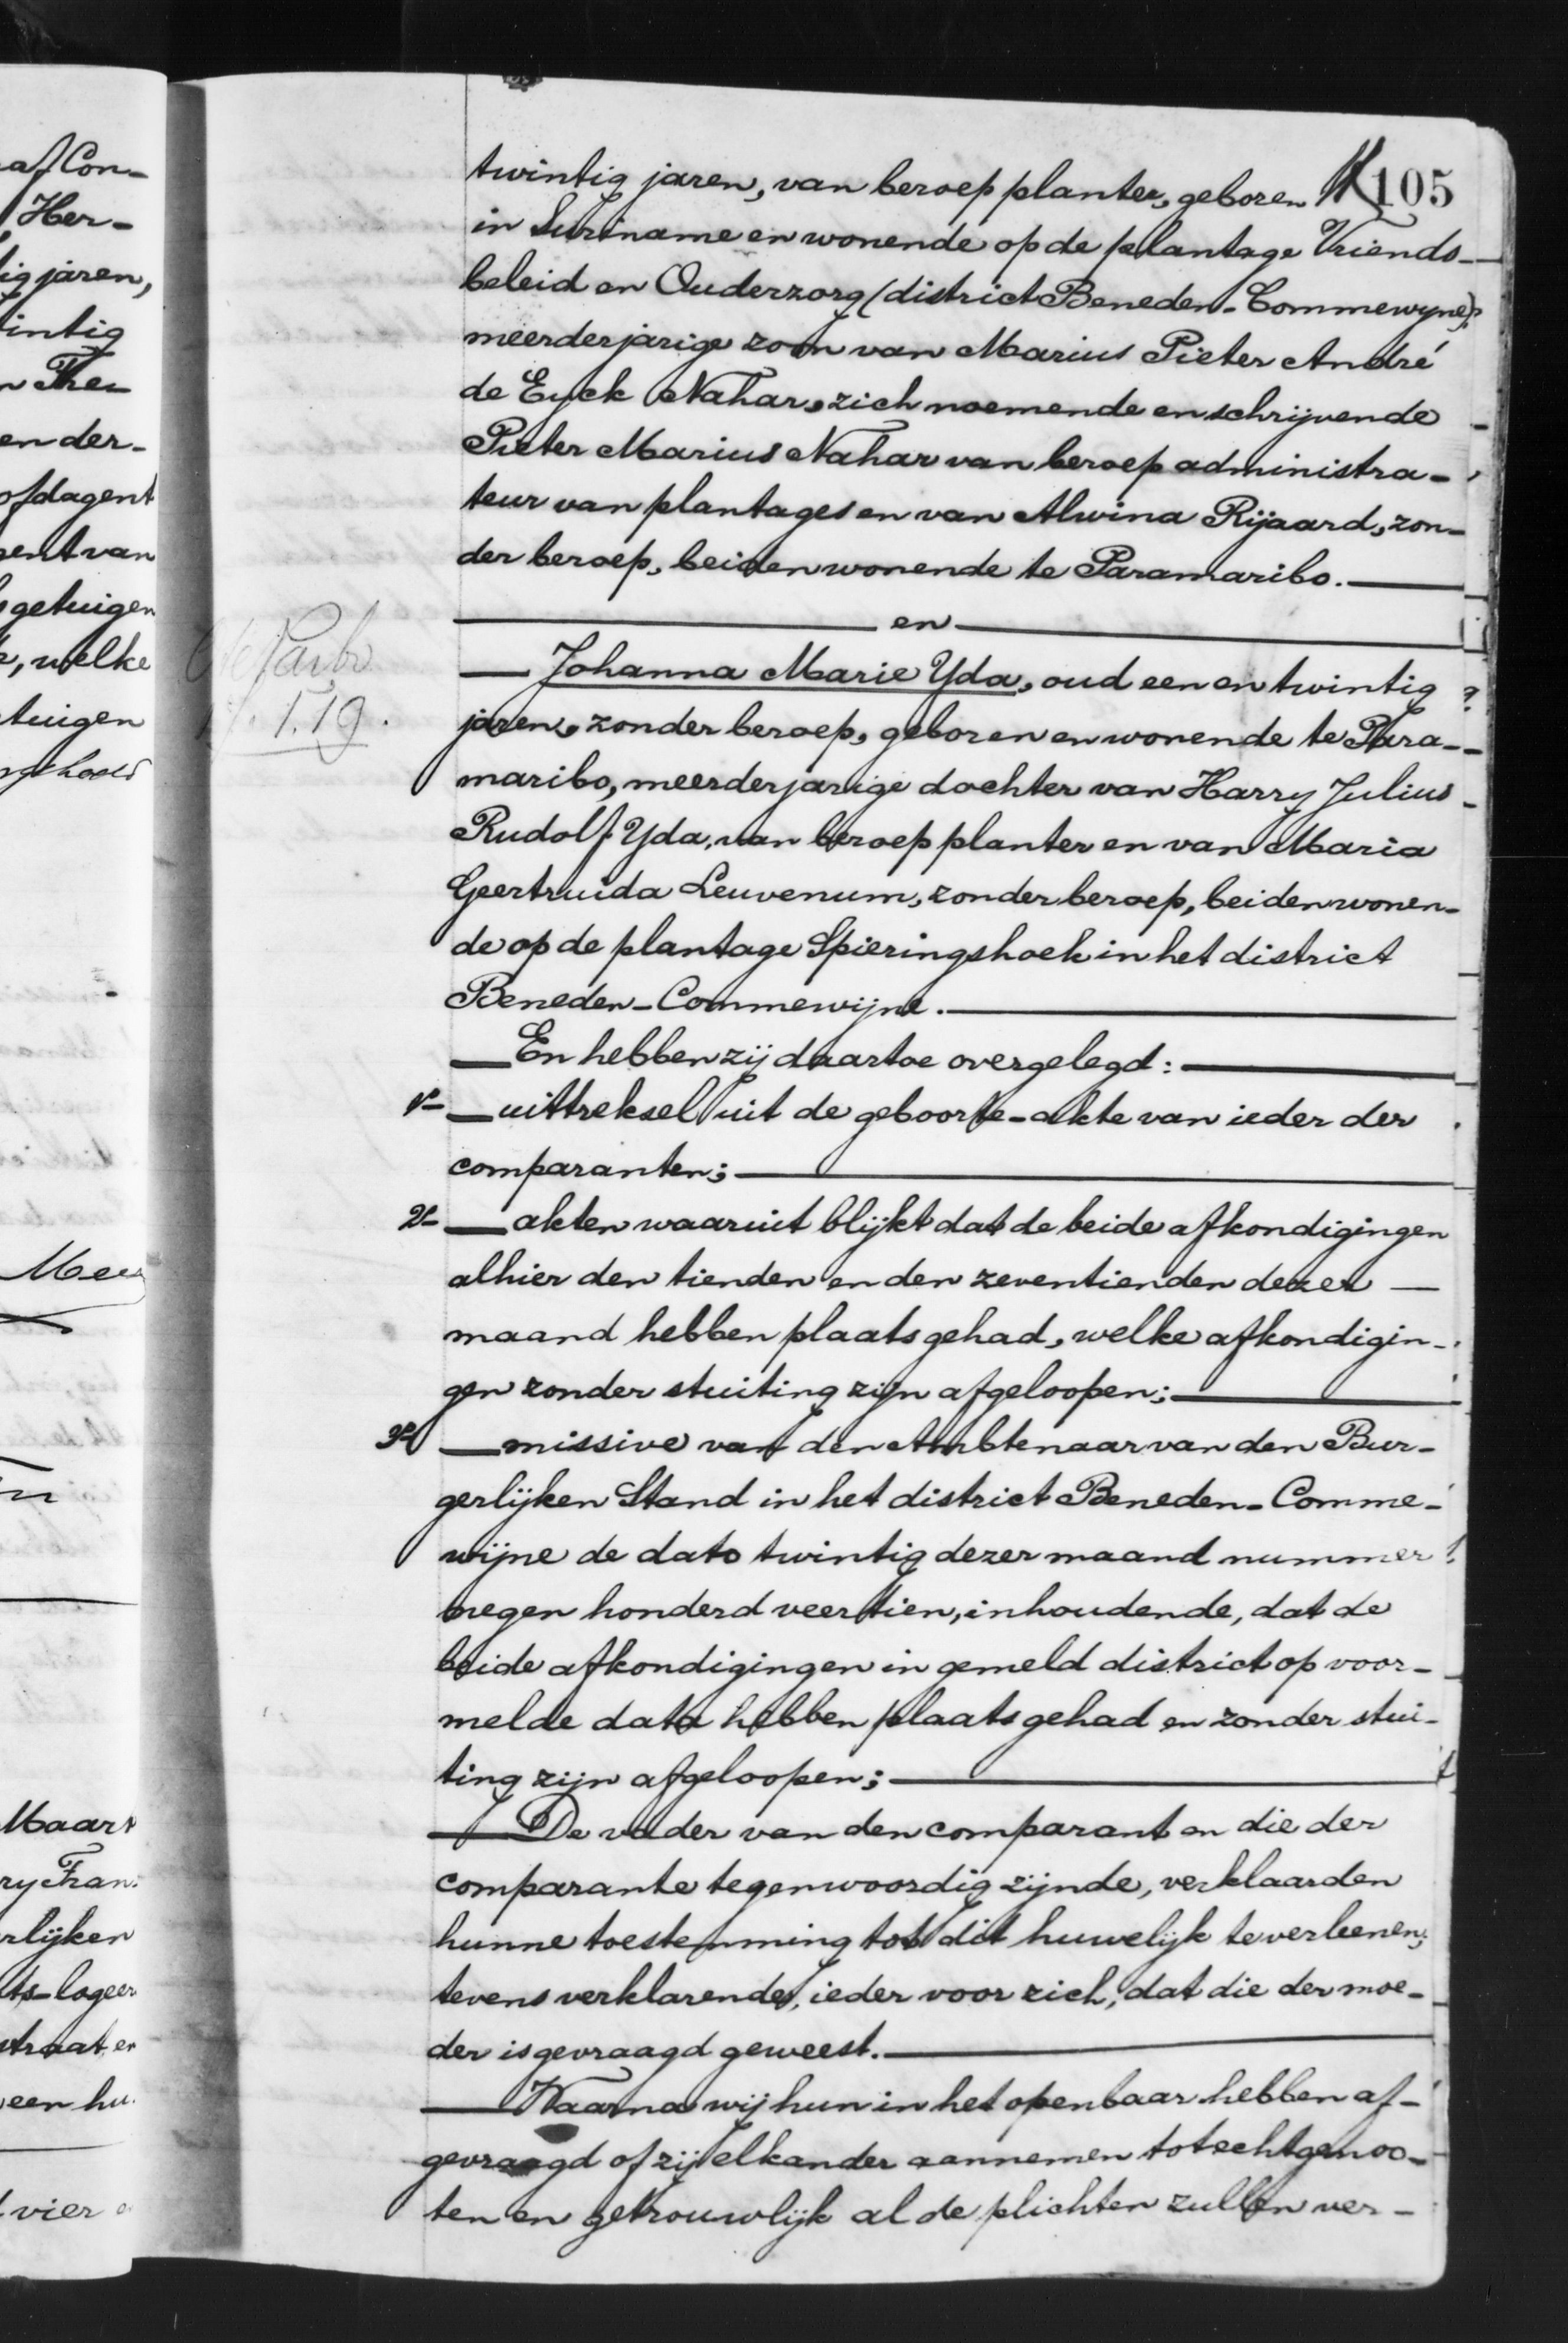 af Con-
Her-
tig jaren,
intig
en der-
ofdagent
sent van
getuigen
, welke
tuigen
Maart
ry Fran.
rlijken
straat en
een hu.
vier
105
twintig jaren, van beroep planter, geboren
in Suriname en wonende op de plantage Vriends-
beleid en Ouderzorg (district Beneden-Commewyne),
meerderjarige zoon van Marius Pieter André
de Eyck Nahar, zich noemende en schrijvende
Pieter Marius Nahar van beroep administra-
teur van plantages en van Alwina Rijaard, zon-
der beroep, beiden wonende te Paramaribo.
en
Johanna Marie Yda, oud een en twintig
jaren, zonder beroep, geboren en wonende te Para-
maribo, meerderjarige dochter van Harry Julius
Rudolf Yda, van beroep planter en van Maria
Geertruida Leuvenum, zonder beroep, beiden wonen-
de op de plantage Spieringshoek in het district
Beneden-Commewijne.
En hebben zij daartoe overgelegd:
1e uittreksel uit de geboorte-akte van ieder der
comparanten;
2e akten waaruit blijkt dat de beide afkondigingen
alhier den tienden en den zeventienden dezer
maand hebben plaats gehad, welke afkondigin-
gen zonder stuiting zijn afgeloopen;
3e missive van den Ambtenaar van den Bur-
gerlijken Stand in het district Beneden-Comme-
wijne de dato twintig dezer maand nummer
negen honderd veertien, inhoudende, dat de
beide afkondigingen in gemeld district op voor-
melde data hebben plaats gehad en zonder stui-
ting zijn afgeloopen;
De vader van den comparant en die der
comparante tegenwoordig zijnde, verklaarden
hunne toestemming tot dit huwelijk te verleenen;
tevens verklarende, ieder voor zich, dat die der moe-
der is gevraagd geweest.
Waarna wij hun in het openbaar hebben af-
gevraagd of zij elkander aannemen tot echtgenoo-
ten en getrouwlijk al de plichten zullen ver-